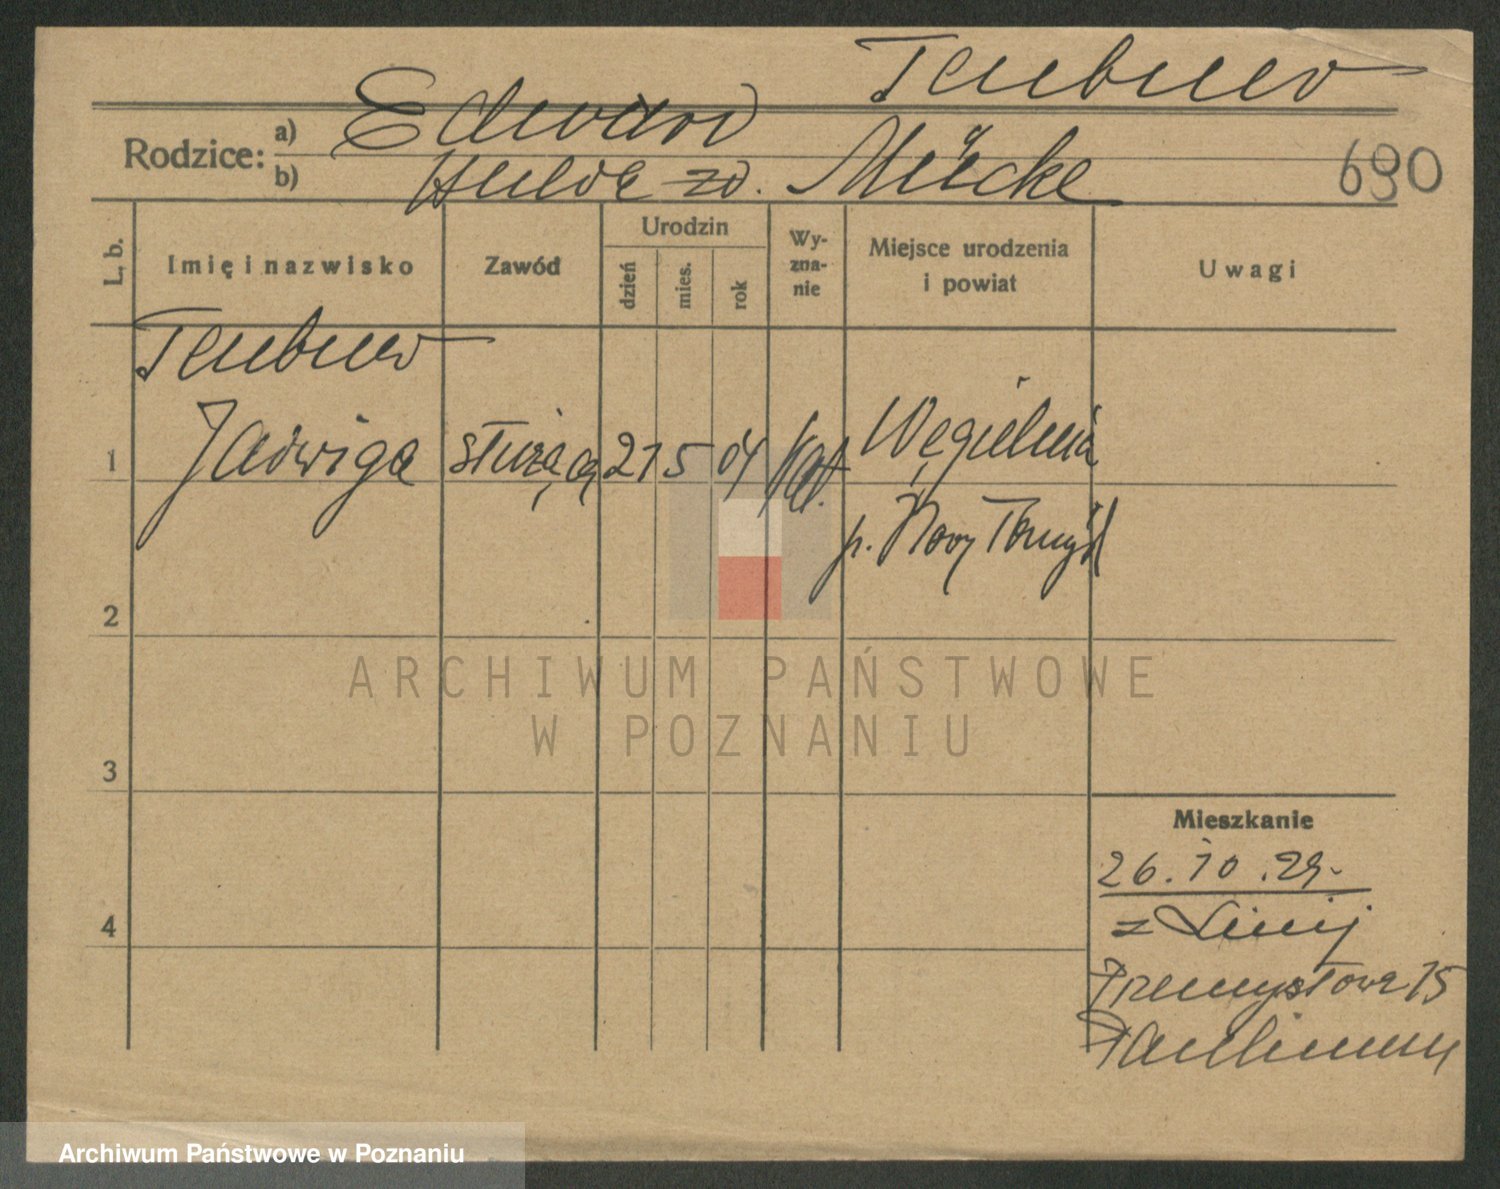 Teubner
Rodzice: a) Edward
b) Hulda zd. Mücke
690
L. b.
Imię i nazwisko
Zawód
Urodzin
dzień
mies.
rok
Wy-
zna-
nie
Miejsce urodzenia
i powiat
Uwagi
Teubner
1 Jadwiga służąca 21 5 04 kat. Węgielnia
p. Nowy Tomyśl
2
3
4
Mieszkanie
26.10.29.
z Linij
Przemysłowa 15
ARCHIWUM PAŃSTWOWE
W POZNANIU
Archiwum Państwowe w Poznaniu